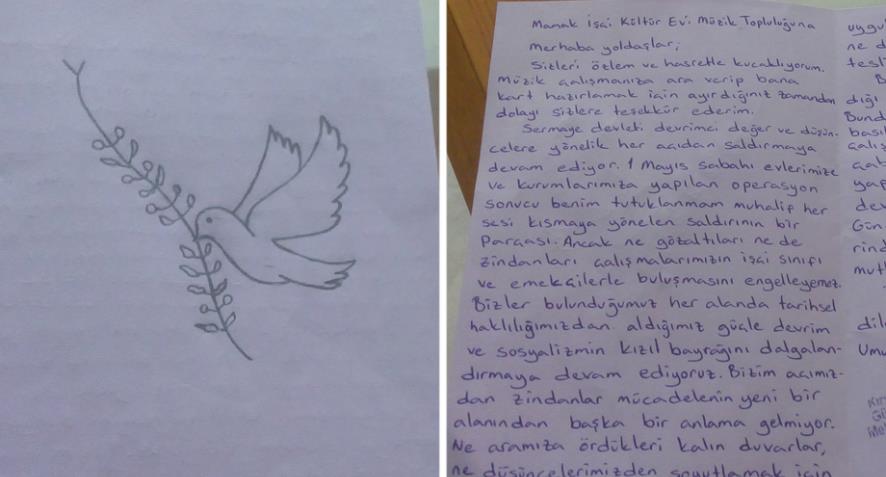 Mamak İşçi Kültür Evi Müzik Topluluğuna
Merhaba yoldaşlar;
Sizleri özlem ve hasretle kucaklıyorum.
Müzik çalışmanıza ara verip bana
kart hazırlamak için ayırdığınız zamandan
dolayı sizlere teşekkür ederim.
Sermaye devleti devrimci değer ve düşün-
celere yönelik her açıdan saldırmaya
devam ediyor. 1 Mayıs sabahı evlerimize
ve kurumlarımıza yapılan operasyon
sonucu benim tutuklanmam muhalif her
sesi kısmaya yönelen saldırının bir
parçası. Ancak ne gözaltıları ne de
zindanları çalışmalarımızın işçi sınıfı
ve emekçilerle buluşmasını engelleyemez.
Bizler bulunduğumuz her alanda tarihsel
haklılığımızdan aldığımız güçle devrim
ve sosyalizmin kızıl bayrağını dalgalan-
dırmaya devam ediyoruz. Bizim açımız-
dan zindanlar mücadelenin yeni bir
alanından başka bir anlama gelmiyor.
Ne aramıza ördükleri kalın duvarlar,
ne düşüncelerimizden soyutlamak için
uygu
ne d
tesl
B
dığı
Bund
bası
çalış
yap
dev
Gün
rind
mutl
dil
Umu